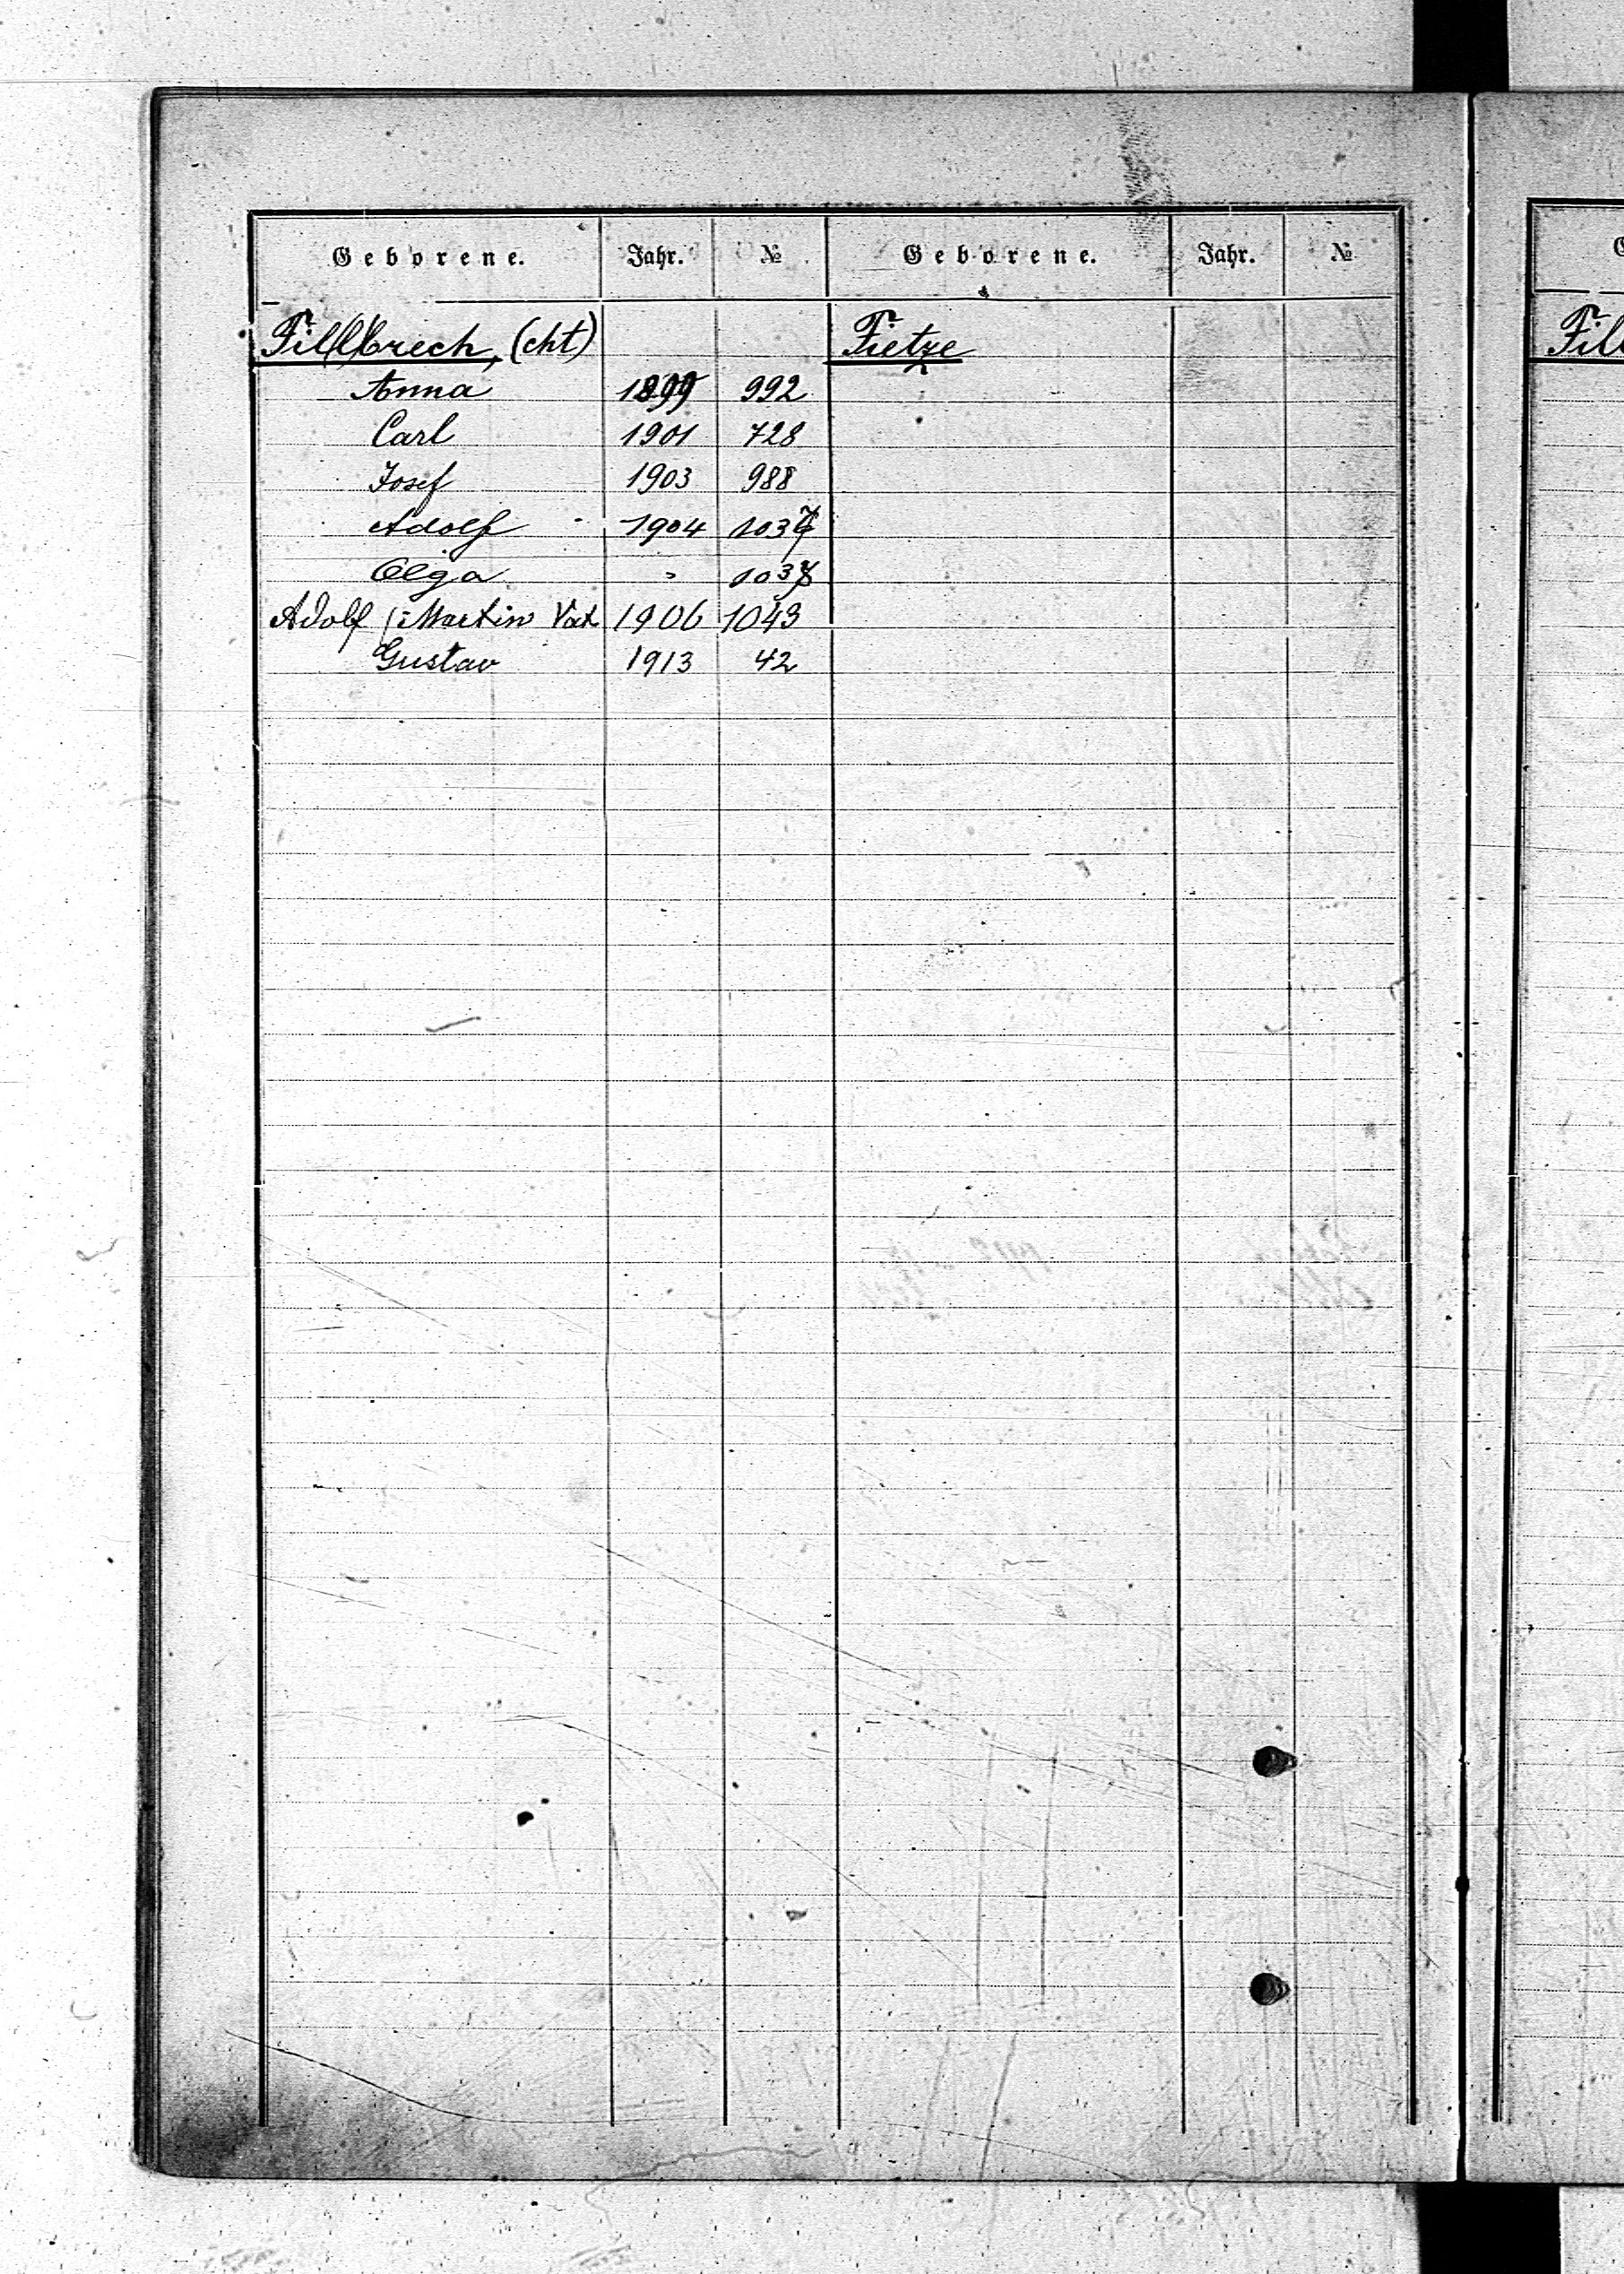 Geborene. Jahr. № Geborene. Jahr. №
Fil(l)brech, (cht) Fietze Fill
Anna 1899 992
Carl 1901 728
Josef 1903 988
Adolf 1904 1037
Olga " 1038
Adolf (Martin Vat 1906 1043
Gustav 1913 42